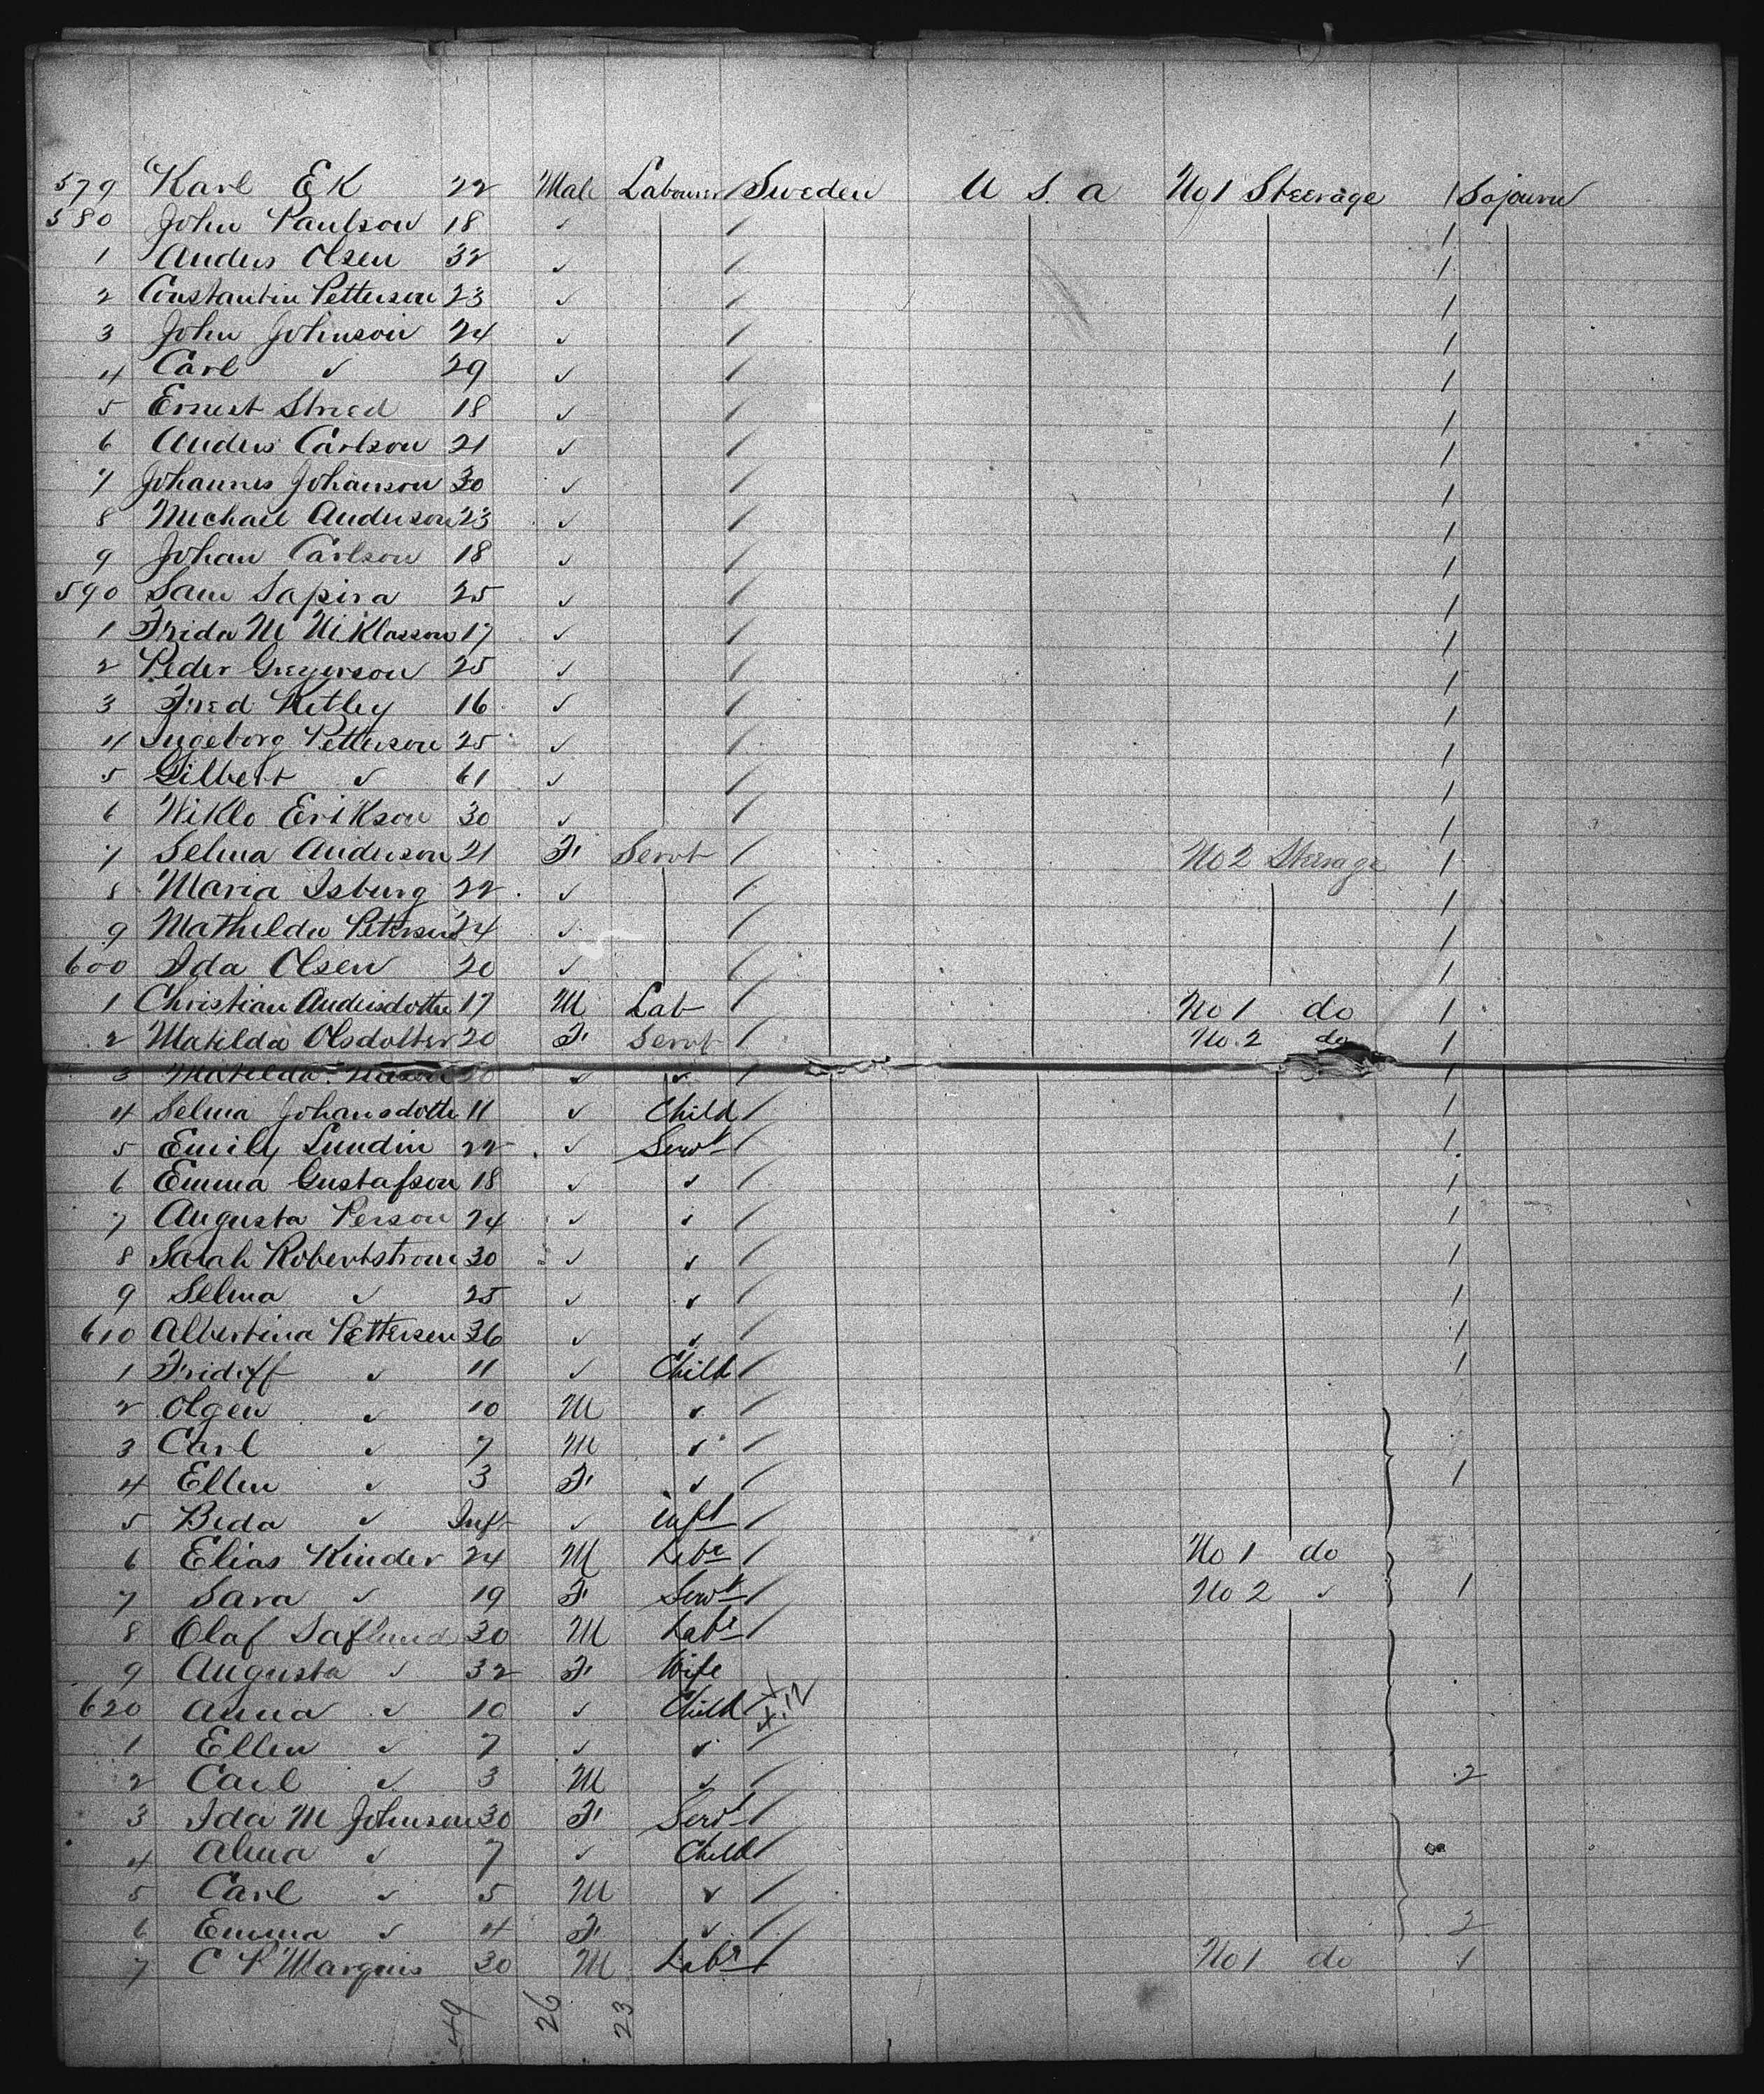 579 Karl Ek 22 Male Labourer / Sweden U S. A No 1 Steerage 1 Sojourn
580 John Paulson 18 ✓ / 1
1 Anders Olsen 32 ✓ / 1
2 Constantin Petterson 23 ✓ / 1
3 John Johnson 24 ✓ / 1
4 Carl ✓ 29 ✓ / 1
5 Ernest Stried 18 ✓ / 1
6 Anders Carlson 21 ✓ / 1
7 Johannes Johanson 30 ✓ / 1
8 Michael Anderson 23 ✓ / 1
9 Johan Carlson 18 ✓ / 1
590 Sam Sapira 25 ✓ / 1
1 Frida M Niklasson 17 ✓ / 1
2 Peder Gregerson 25 ✓ / 1
3 Fred Ketley 16 ✓ / 1
4 Ingeborg Petterson 25 ✓ / 1
5 Gilbert ✓ 61 ✓ / 1
6 Niklo Erikson 30 ✓ / 1
7 Selma Anderson 21 F. Servt / No 2 Steerage 1
8 Maria Isburg 22 ✓ / 1
9 Mathilda Peterson 24 ✓ / 1
600 Ida Olsen 20 ✓ / 1
1 Christian Andersdotter 17 M Lab / No 1 do 1
2 Matilda Olsdotter 20 F. Servt / No. 2 do 1
3 Matilda 20 ✓ ✓ / 1
4 Selma Johansdotte 11 ✓ Child / 1
5 Emily Lundin 22 ✓ Servt / 1
6 Emma Gustafson 18 ✓ ✓ / 1
7 Augusta Person 24 ✓ ✓ / 1
8 Sarah Robertstrom 30 ✓ ✓ / 1
9 Selma ✓ 25 ✓ ✓ / 1
610 Albertina Pettersen 36 ✓ ✓ / 1
1 Fridiff ✓ 11 ✓ Child / 1
2 Olgen ✓ 10 M ✓ /
3 Carl ✓ 7 M ✓ /
4 Ellen ✓ 3 F. ✓ / 1
5 Beda ✓ Inft ✓ Inft /
6 Elias Kinder 24 M Labr / No 1 do
7 Sara ✓ 19 F. Servt / No 2 ✓ 1
8 Olaf Saflund 30 M Labr /
9 Augusta ✓ 32 F. Wife
620 Anna ✓ 10 ✓ Child
1 Ellen ✓ 7 ✓ ✓ /
2 Carl ✓ 3 M ✓ / 2
3 Ida M Johnson 30 F. Servt /
4 Alma ✓ 7 ✓ Child /
5 Carl ✓ 5 M ✓ /
6 Emma ✓ 4 F. ✓ / 2
7 C P Marquis 30 M Labr / No 1 do 1
49 26 23